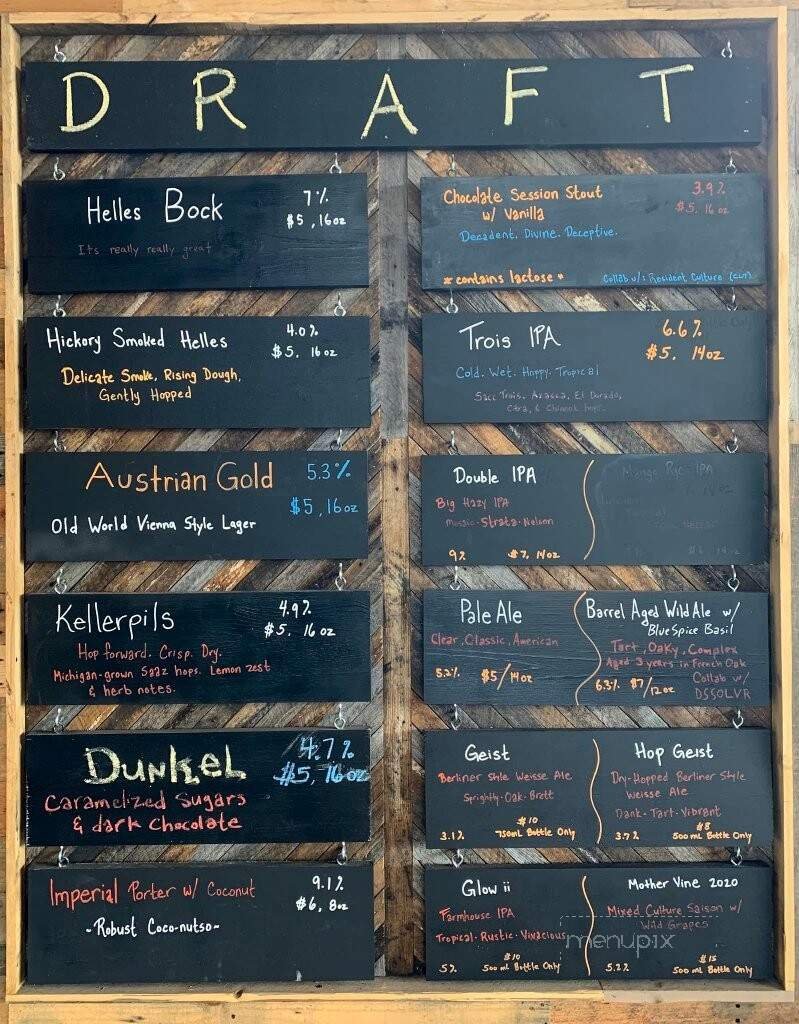 DRAFT
Helles Bock 7%
$5, 16oz
It's really really great
Hickory Smoked Helles 4.0%
$5. 16oz
Delicate Smoke, Rising Dough,
Gently Hopped
Austrian Gold 5.3%
$5, 16oz
Old World Vienna Style Lager
Kellerpils 4.9%
$5. 16oz
Hop forward. Crisp. Dry.
Michigan-grown Saaz hops. Lemon zest
& herb notes.
Dunkel 4.7%
$5, 16oz
Caramelized Sugars
& dark Chocolate
Imperial Porter w/ Coconut 9.1%
$6, 8oz
~Robust Coco-nutso~
Chocolate Session Stout 3.9%
w/ Vanilla $5. 16oz
Decadent. Divine. Deceptive.
*contains lactose* Collab w/: Resident Culture (CLT)
Trois IPA 6.6%
$5. 14oz
Cold. Wet. Hoppy. Tropical
Sacc Trois. Azacca, El Dorado,
Citra, & Chinook hops.
Double IPA
Big Hazy IPA
Mosaic-Strata-Nelson
9% $7, 14oz
Mango Rye IPA
Pale Ale
Clear, Classic, American
5.2% $5/14oz
Barrel Aged Wild Ale w/
Blue Spice Basil
Tart, Oaky, Complex
Aged 3 years in French Oak
6.3% $7/12oz Collab w/
DSSOLVR
Geist
Berliner Style Weisse Ale
Sprightly-Oak-Brett
$10
3.1% 750mL Bottle Only
Hop Geist
Dry-Hopped Berliner Style
Weisse Ale
Dank-Tart-Vibrant
$8
3.7% 500mL Bottle Only
Glow ii
Farmhouse IPA
Tropical-Rustic-Vivacious
$10
5% 500mL Bottle Only
Mother Vine 2020
Mixed Culture Saison w/
Wild Grapes
$15
5.2% 500mL Bottle Only
menupix